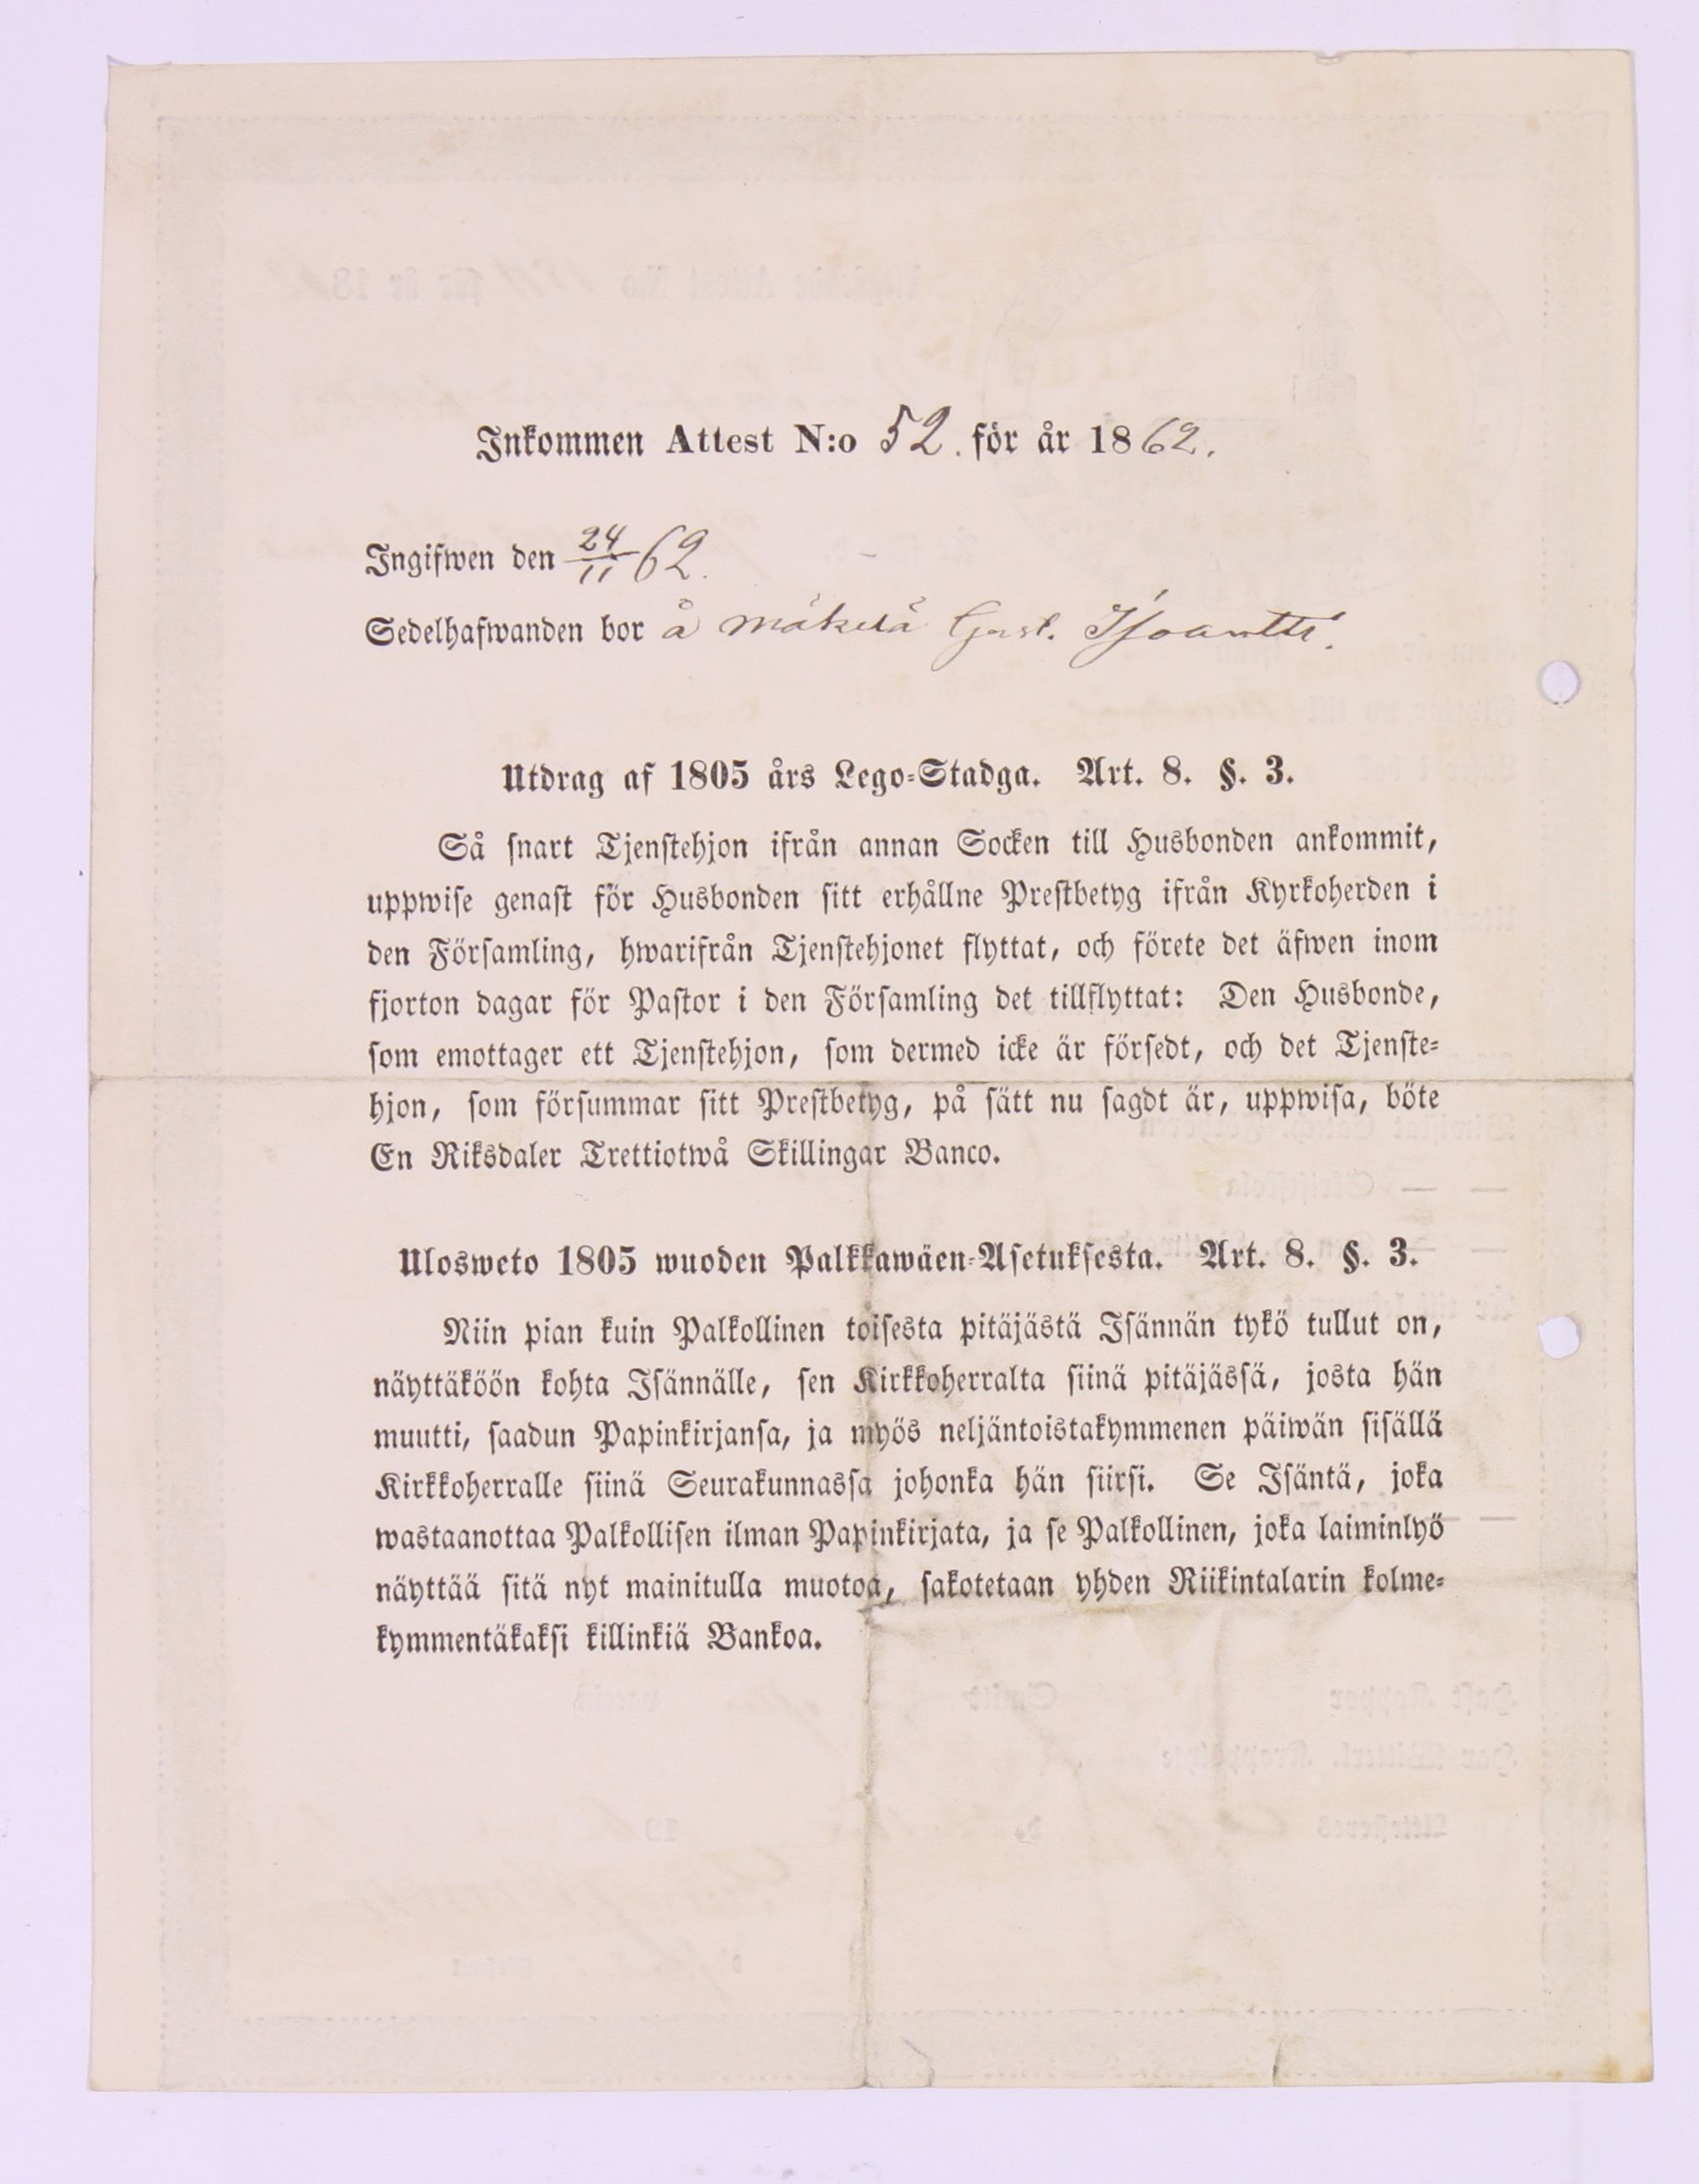 Inkommen Attest N:o 52. för år 1862.
Ingifwen den 24/11 62.
Sedelhafwanden bor å Mäkelä
Utdrag af 1805 års Lego-Stadga. Art. 8. §. 3.
Så snart Tjenstehjon ifrån annan Socken till Husbonden ankommit,
uppwise genast för Husbonden sitt erhållne Prestbetyg ifrån Kyrkoherden i
den Församling, hwarifrån Tjenstehjonet flyttat, och förete det äfwen inom
fjorton dagar för Pastor i den Församling det tillflyttat: Den Husbonde,
som emottager ett Tjenstehjon, som dermed icke är försedt, och det Tjenste-
hjon, som försummar sitt Prestbetyg, på sätt nu sagdt är, uppwisa, böte
En Riksdaler Trettiotwå Skillingar Banco.
Ulosweto 1805 wuoden Palkkawäen-Asetuksesta. Art. 8. §. 3.
Niin pian kuin Palkollinen toisesta pitäjästä Isännän tykö tullut on,
näyttäköön kohta Isännälle, sen Kirkkoherralta siinä pitäjässä, josta hän
muutti, saadun Papinkirjansa, ja myös neljäntoistakymmenen päiwän sisällä
Kirkkoherralle siinä Seurakunnassa johonka hän siirsi. Se Isäntä, joka
wastaanottaa Palkollisen ilman Papinkirjata, ja se Palkollinen, joka laiminlyö
näyttää sitä nyt mainitulla muotoa, sakotetaan yhden Riikintalarin kolme-
kymmentäkaksi killinkiä Bankoa.